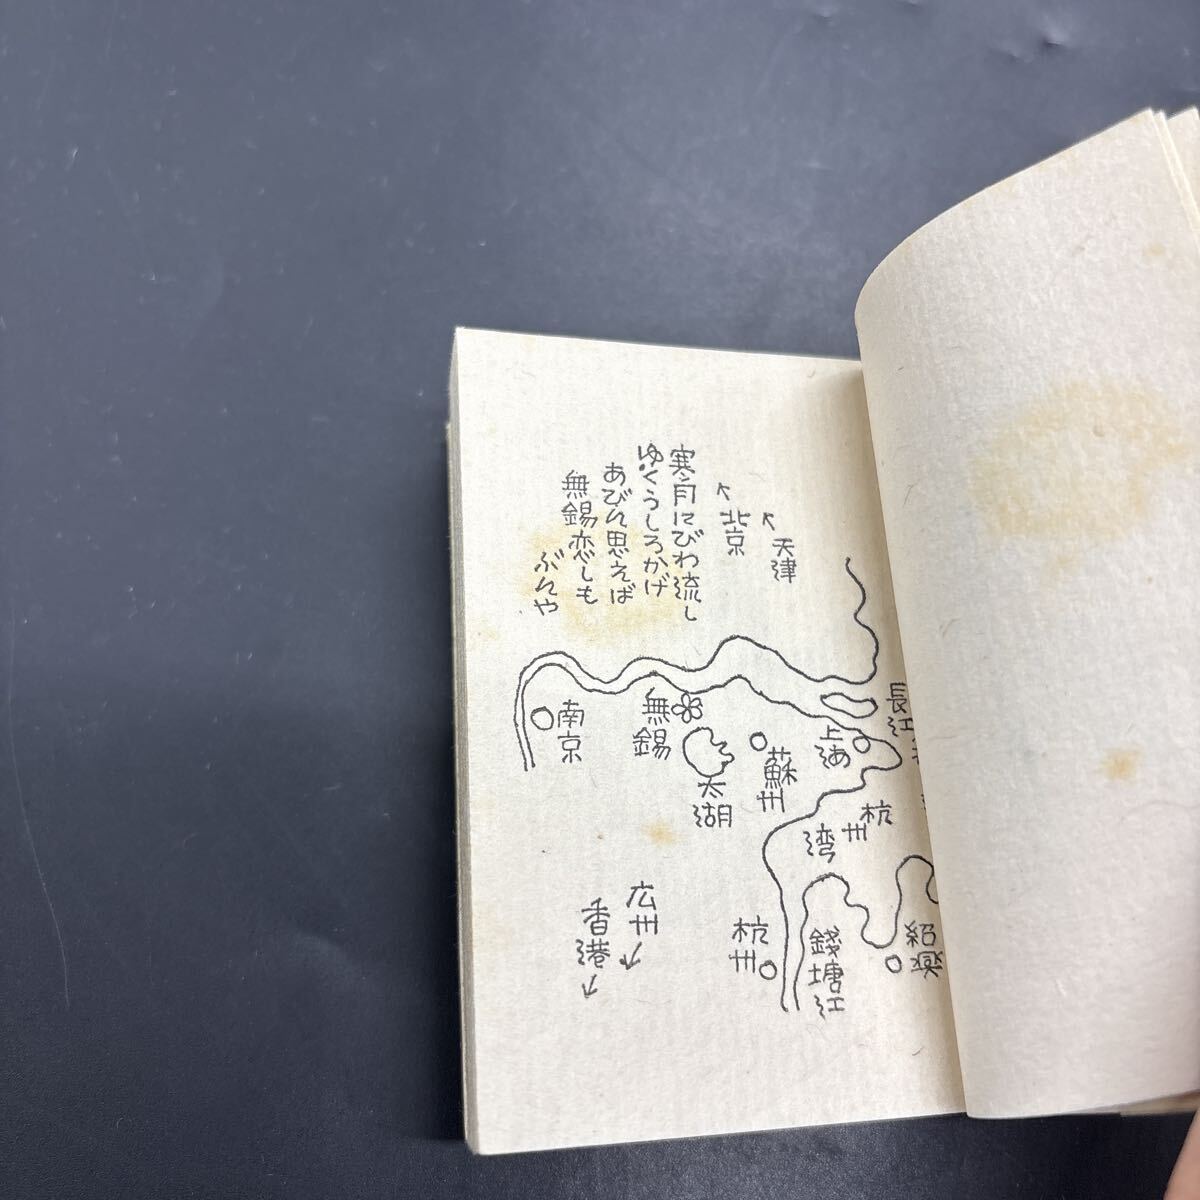 天津
北京
寒月にびわ流し
ゆくうしろかげ
あびん思えば
無錫恋しも
ぶんや
長江
上海
蘇州
無錫
太湖
南京
杭州
湾
紹興
錢塘江
杭州
広州
香港